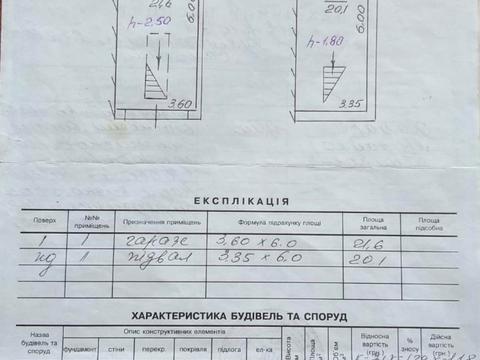 21,6 6.00 20,1 6.00
h-2,50 h-1,80
3.60 3.35
ЕКСПЛІКАЦІЯ
Поверх №№ приміщень Призначення приміщень Формула підрахунку площі Площа загальна Площа підсобна
1 1 гараж 3,60 x 6.0 21,6
пд 1 підвал 3.35 x 6.0 20.1
ХАРАКТЕРИСТИКА БУДІВЕЛЬ ТА СПОРУД
Назва будівель та споруд Опис конструктивних елементів Висота Площа Об'єм Відносна вартість (грн.) % зносу Дійсна вартість (грн.)
фундамент стіни перекр. покрівля підлога ел-ка